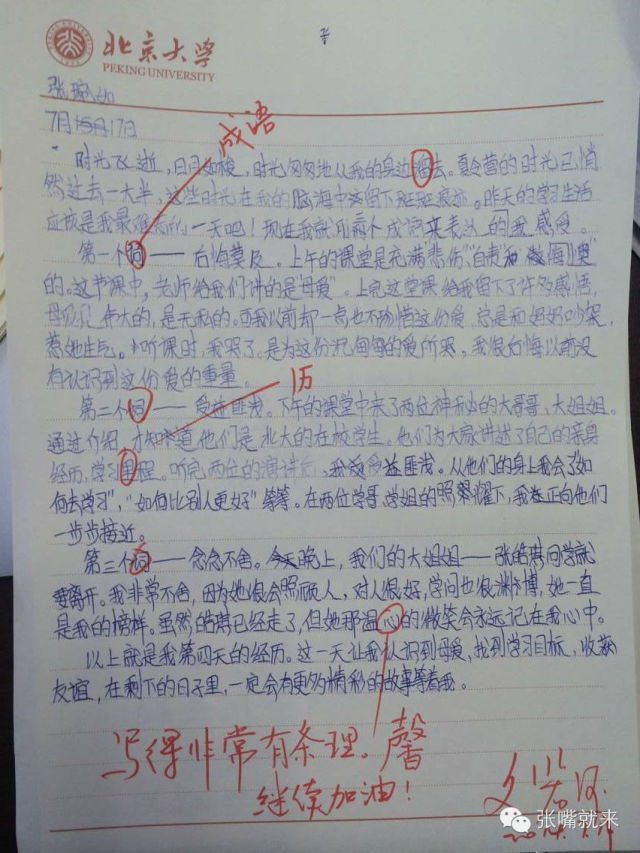 北京大学
PEKING UNIVERSITY
7月17日
成语
时光飞逝，日月如梭，时光匆匆地从我的身边溜去。夏令营的时光已悄
然过去一大半，这些时光在我的脑海中留下斑斑痕迹。昨天的学习生活
应该是我最难忘的一天吧！现在我就用个成词来表达的我感受。
第一个词——后悔莫及。上午的课堂是充满"悲伤""自责"和
的。这节课中，老师给我们讲的是"母爱"。上完这堂课给我留下了许多感悟，
母爱是伟大的，是无私的。可我以前却一点也不珍惜这份爱，总是和妈妈吵架，
惹她生气。听课时，我哭了。是为这份沉甸甸的爱所哭，我很后悔以前没
有认识到这份爱的重量。
历
第二个词——受益匪浅。下午的课堂中来了两位神秘的大哥哥、大姐姐。
通过介绍，才知道他们是北大的在校学生。他们为大家讲述了自己的亲身
经历，学习里程。听完两位的演讲后，我受益匪浅。从他们的身上我会了"如
何去学习"，"如何比别人更好"等等。在两位学哥、学姐的照耀下，我在正向他们
一步步接近。
第三个词——念念不舍。晚上，我们的大姐姐——张皓燕同学就
要离开。我非常不舍，因为她很会照顾人，对人很好，学问也很渊博，她一直
是我的榜样。虽然皓燕已经走了，但她那温心的微笑会永远记在我心中。
以上就是我第四天的经历。这一天让我认识到母爱，找到学习目标，收获
友谊，在剩下的日子里，一定会有更多精彩的故事等着我。
写得非常有条理。馨
继续加油！
张嘴就来